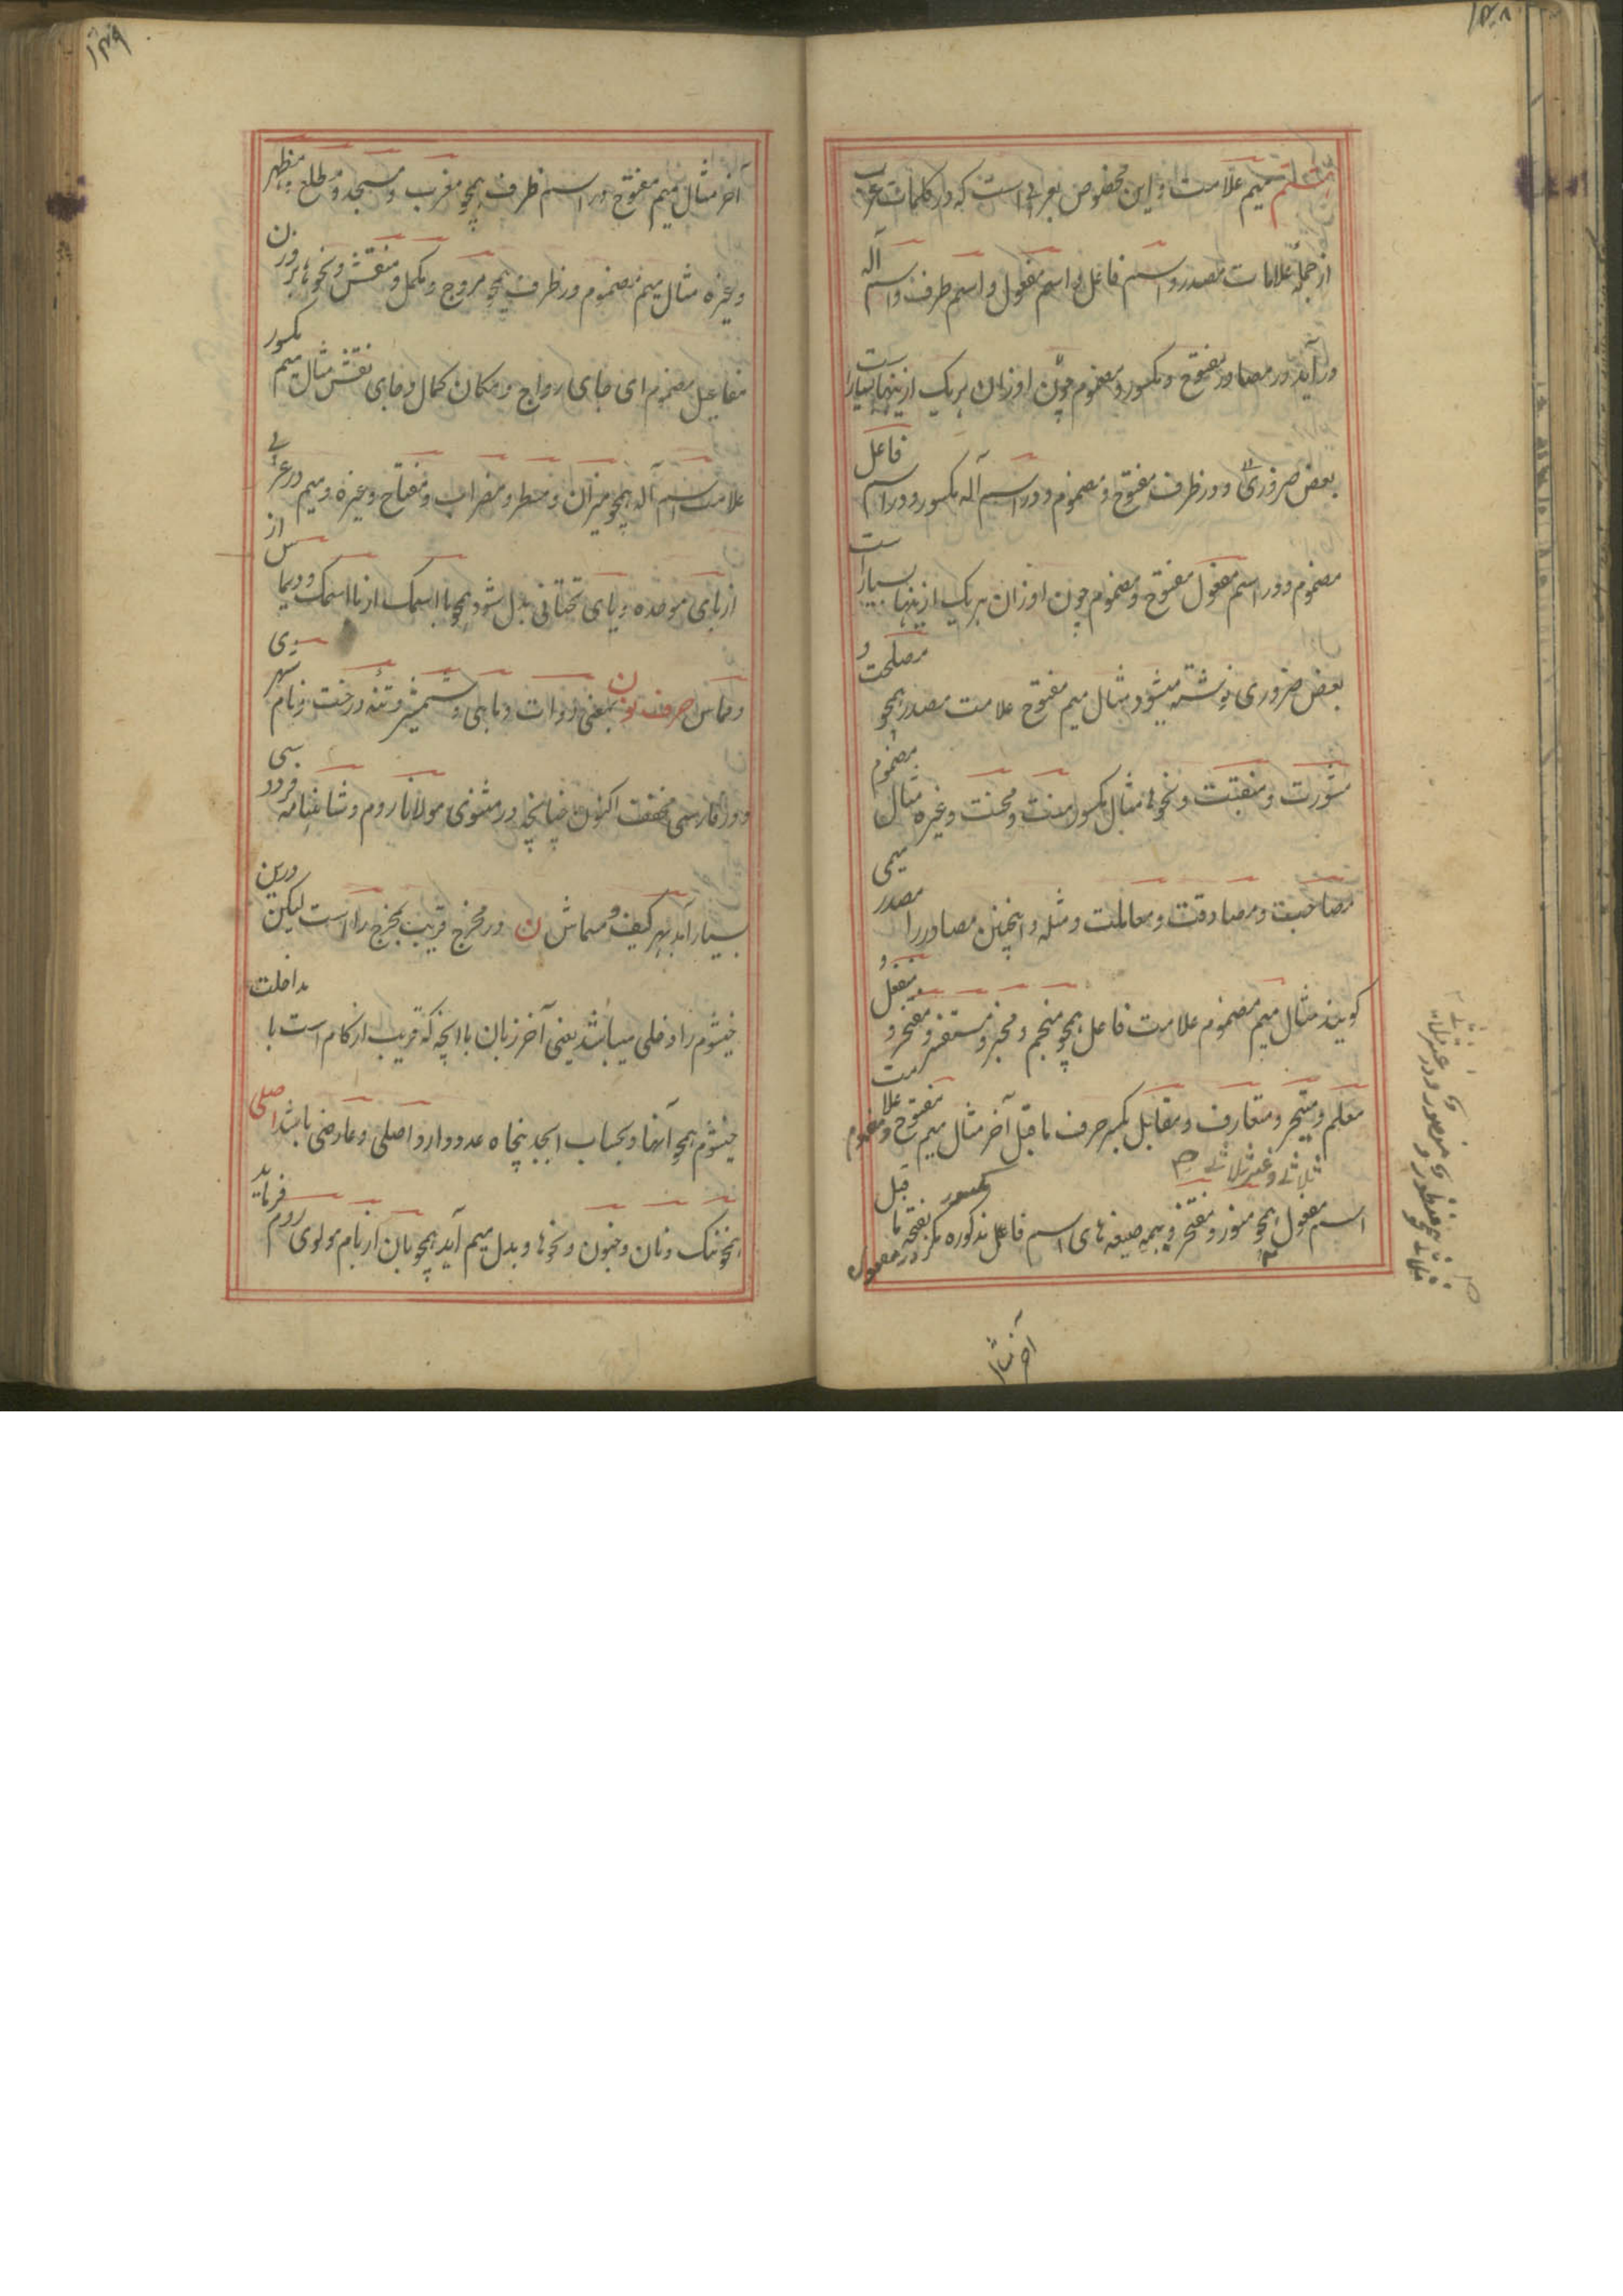 ۱۴۸
هشتم میم علامت و این مخصوص بعربی است که در کلمات عرب
از جمله علامات مصدر و اسم فاعل و اسم مفعول و اسم ظرف و اسم آله
در آید در مصادر مفتوح و مکسور و مضموم چون اوزان هر یک ازینها بسیار است
بعض ضروری و در ظرف مفتوح و مضموم و در اسم آله مکسور و در اسم فاعل
مضموم و در اسم مفعول مفتوح و مضموم چون اوزان هر یک ازینها بسیار است
بعض ضروری نوشته میشود مثال میم مفتوح علامت مصدر همچو مصلحت و
مشورت و منقبت و نحوها مثال مکسور منت و محنت و غیره مثال مضموم
مصاحبت و مصادقت و معاملت و مثله و اینچنین مصادر را مصدر میمی
کویند مثال میم مضموم علامت فاعل همچو منجم و مخبر و مستفسر و مفتخر و منفعل و
معلم و متبحر و متعارف و مقابل بکسر حرف ما قبل آخر مثال میم مفتوح و مضموم علامت
ثلاثی و غیر ثلاثی
اسم مفعول همچو منور و مفتخر و همه صیغه های اسم فاعل مذکوره مکر بفتحه ما قبل
آخر مثال
۱۴۹
آخر مثال میم مفتوح در اسم ظرف همچو مغرب و مسجد و مطلع و مظهر
و غیره مثال میم مضموم در ظرف همچو مروج و مکمل و منقش و نحوها بر وزن
مفاعیل مضموم ای جای رواج و مکان کمال و جای نقش مثال میم مکسور
علامت اسم آله همچو میزان و مسطر و مضراب و مفتاح و غیره و میم در عربی
از بای موحده و یای تحتانی بدل شود همچو با اسمک از با اسمک و دیما از
و مماس حرف نون بمعنی دوات و ماهی و شمشیر و تنه درخت و نام
و در فارسی مخفف اکنون چنانچه در مثنوی مولانا روم و شاهنامه فردوسی
بسیار آمد بهر کیف و مماش ن در مخرج قریب بمخرج را است لیکن درین
خیشوم را دخلی میباشد یعنی آخر زبان با انچه که قریب از کام است با مداخلت
خیشوم همچو آنها و بحساب ابجد پنجاه عدد دارد و اصلی و عارضی باشد اصلی
همچو ننک و نان و جنون و نحوها و بدل میم آید همچو بان از بام مولوی روم فرماید